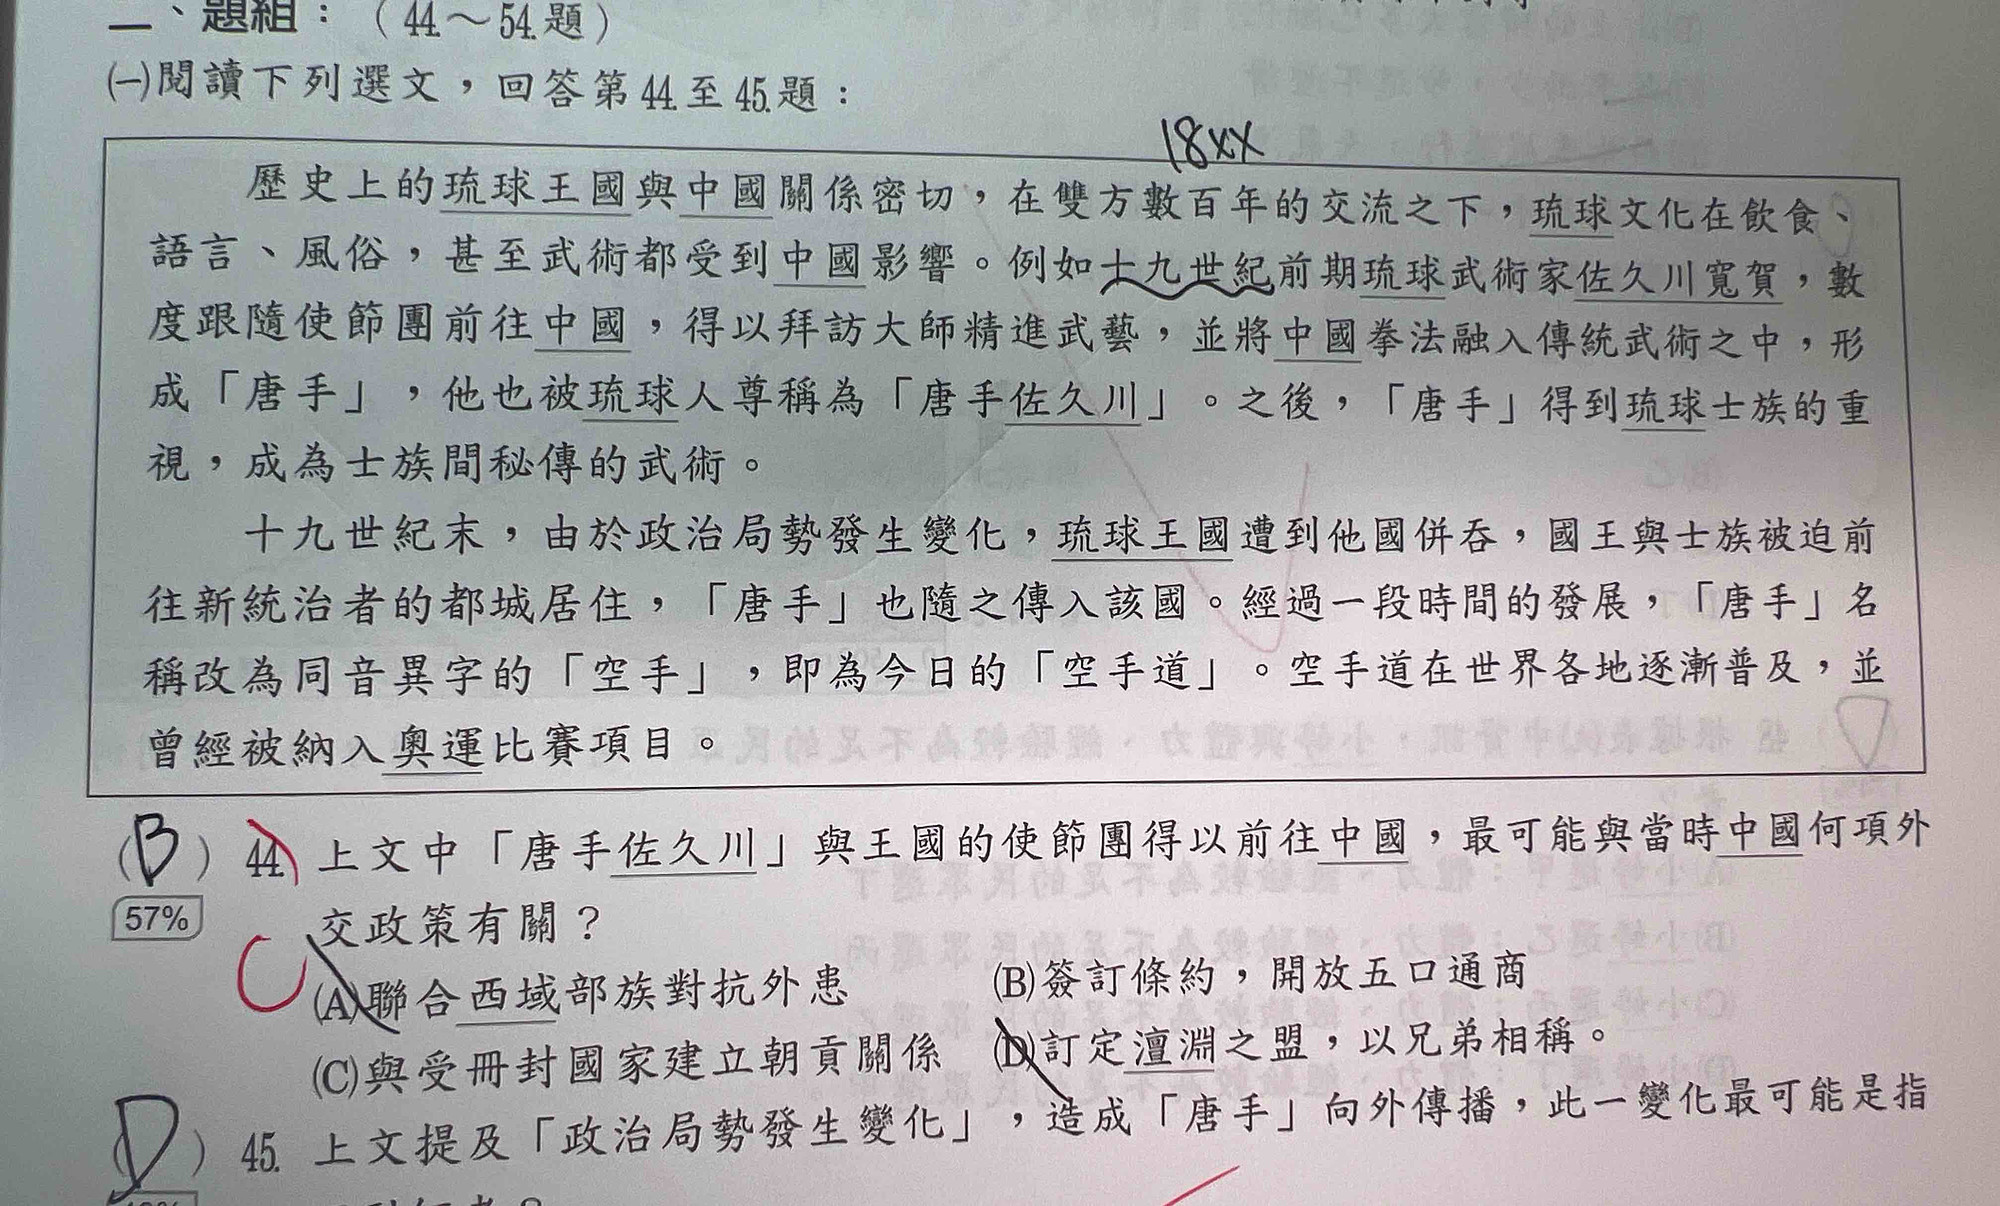 二、題組：（44.～54.題）
㈠閱讀下列選文，回答第44.至45.題：
18xx
歷史上的琉球王國與中國關係密切，在雙方數百年的交流之下，琉球文化在飲食、
語言、風俗，甚至武術都受到中國影響。例如十九世紀前期琉球武術家佐久川寬賀，數
度跟隨使節團前往中國，得以拜訪大師精進武藝，並將中國拳法融入傳統武術之中，形
成「唐手」，他也被琉球人尊稱為「唐手佐久川」。之後，「唐手」得到琉球士族的重
視，成為士族間秘傳的武術。
十九世紀末，由於政治局勢發生變化，琉球王國遭到他國併吞，國王與士族被迫前
往新統治者的都城居住，「唐手」也隨之傳入該國。經過一段時間的發展，「唐手」名
稱改為同音異字的「空手」，即為今日的「空手道」。空手道在世界各地逐漸普及，並
曾經被納入奧運比賽項目。
（B）44.上文中「唐手佐久川」與王國的使節團得以前往中國，最可能與當時中國何項外
57%
交政策有關？
C
(A)聯合西域部族對抗外患 (B)簽訂條約，開放五口通商
(C)與受冊封國家建立朝貢關係 (D)訂定澶淵之盟，以兄弟相稱。
（D）45.上文提及「政治局勢發生變化」，造成「唐手」向外傳播，此一變化最可能是指